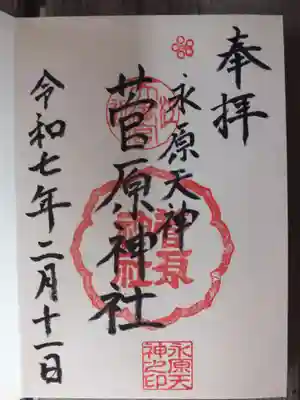 奉拝
永原天神
菅原神社
令和七年二月十一日
菅原
神社
永原天
神之印